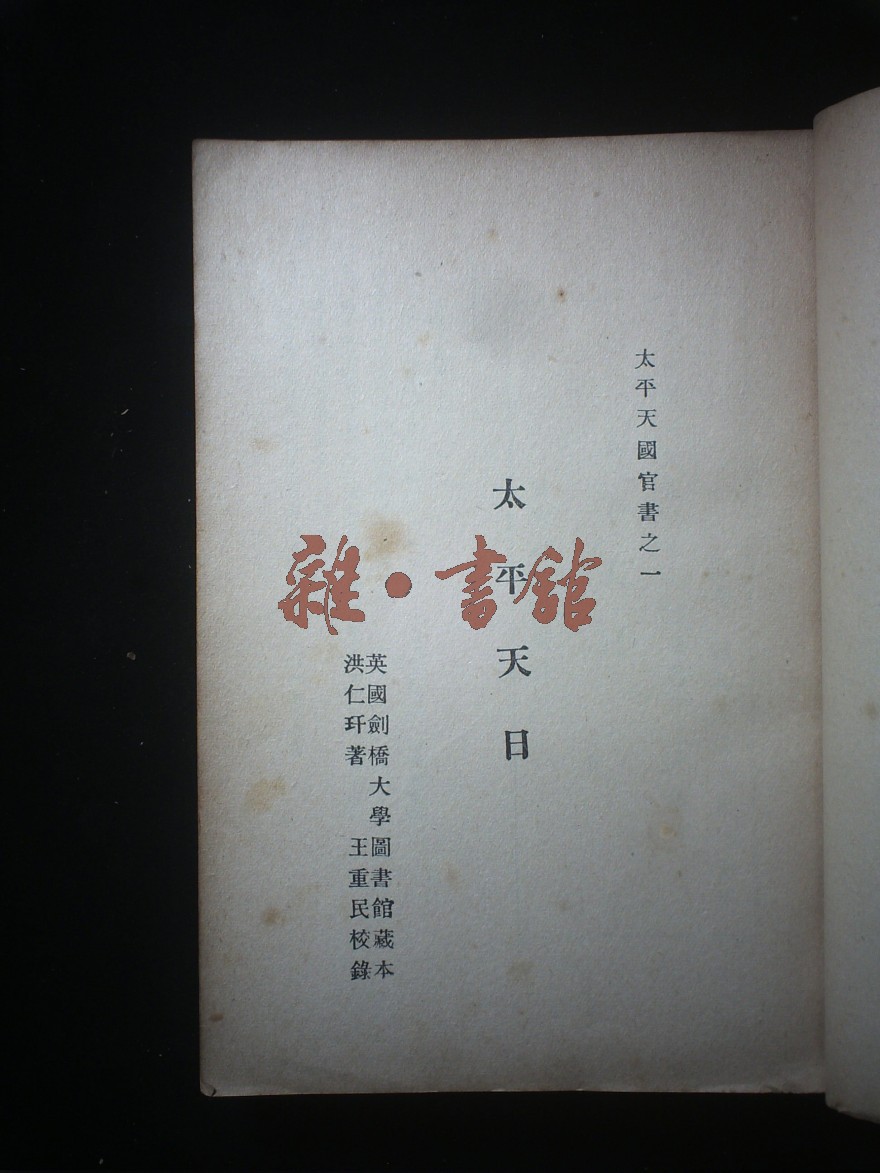 太平天國官書之一
太平天日
英國劍橋大學圖書館藏本
洪仁玕著 王重民校錄
雜·書館